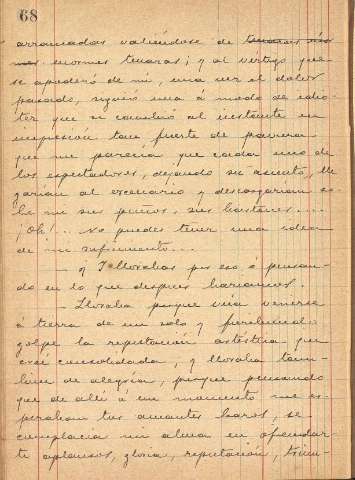 68
arrancadas valiéndose de
enormes tenazas; y al vértigo que
se apoderó de mi, una vez el dolor
pasado, siguió una á modo de
que se cambió al instante en
impresión tan fuerte de pavura
que me parecía que cada uno de
los espectadores, dejando su asiento, lle
garían al escenario y descargarían so-
bre mi sus puños, sus bastones....
¡Oh!... No puedes tener una idea
de mi sufrimiento...
— ¿Y llorabas por eso ó pensan-
do en lo que despues haríamos?
— Lloraba porque veía venirse
á tierra de un solo y
golpe la reputación artística que
creí consolidada, y lloraba tam-
bien de alegría, porque pensando
que de allí á un momento me es-
peraban tus amantes brazos, se
complacía mi alma en ofrendar-
te aplausos, gloria, reputación, triun-